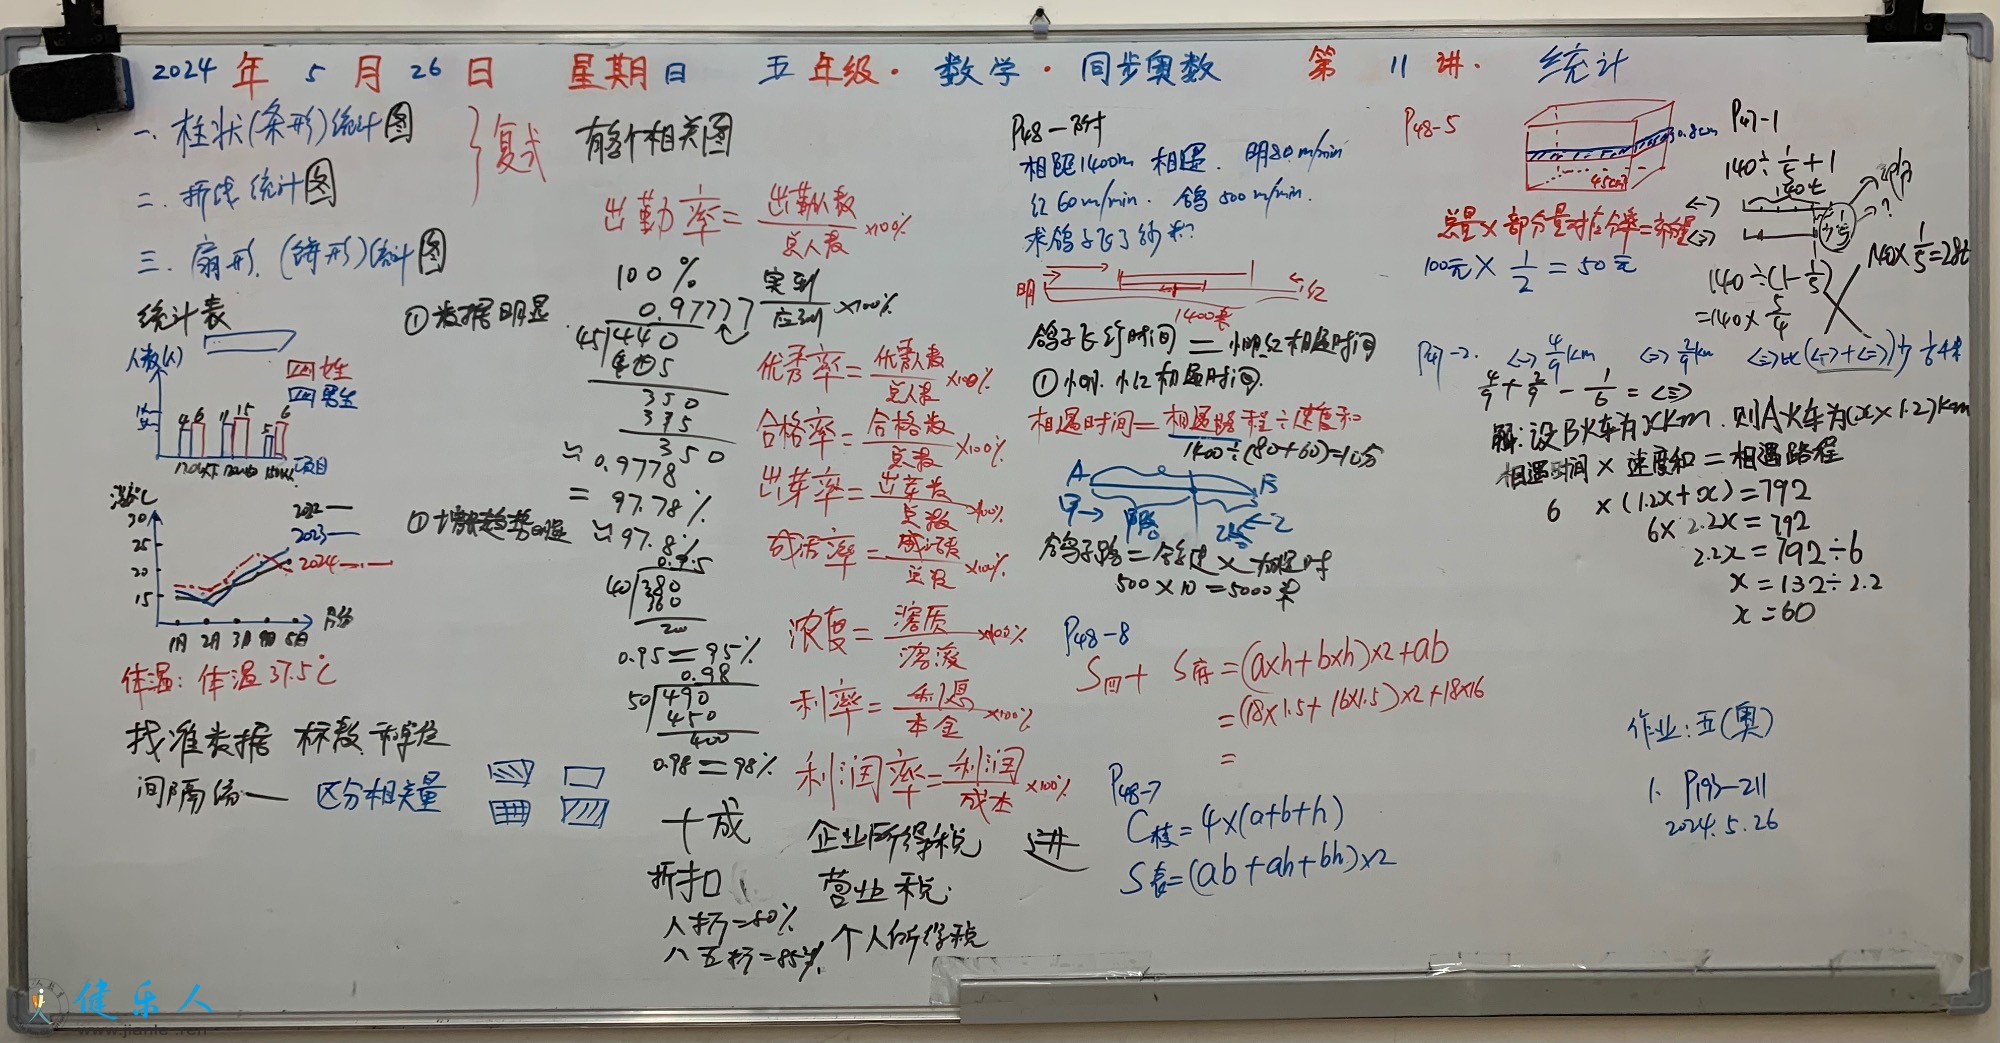 2024年5月26日 星期日 五年级·数学·同步奥数 第11讲·统计
一、柱状(条形)统计图
二、折线统计图
三、扇形(饼形)统计图
复式
有多个相关图
统计表
①数据明显
人数(人)
女生
男生
4 6 11 15 5 6
项目
温度℃
30
25
20
15
1月 2月 3月 4月 5月
月份
2022
2023
2024
体温: 体温37.5℃
找准数据 标数 单位
间隔统一 区分相关量
出勤率=出勤人数/总人数×100%
100%
实到/应到×100%
0.97777
45 440
405
350
315
350
≈0.9778
=97.78%
≈97.8%
0.95
40 380
360
200
0.95=95%
0.98
50 490
450
400
0.98=98%
十成
折扣
八折=80%
八五折=85%
优秀率=优秀人数/总人数×100%
合格率=合格数/总数×100%
出芽率=出芽数/总数×100%
成活率=成活数/总数×100%
浓度=溶质/溶液×100%
利率=利息/本金×100%
利润率=利润/成本×100%
企业所得税
营业税
个人所得税
P48-附
相距1400m 相遇. 明80m/min
红60m/min. 鸽500m/min.
求鸽子飞了多少米?
明
红
1400米
鸽子飞行时间=小明小红相遇时间
①小明、小红相遇时间.
相遇时间=相遇路程÷速度和
1400÷(80+60)=10分
A B
甲→ ←乙
鸽子路=鸽速×相遇时
500×10=5000米
P48-8
S四+S底=(a×h+b×h)×2+ab
=(18×1.5+16×1.5)×2+18×16
=
P48-7
C棱=4×(a+b+h)
S表=(ab+ah+bh)×2
P48-5
0.8cm
总量×部分量对应分率=部分量
100元×1/2=50元
P47-1
140÷1/5+1
140t
<一>
<二>
?
140×1/5=28t
140÷(1-1/5)
=140×5/4
P47-2. <一>4/9km <二>2/9km <三>比(<一>+<二>)少1/6km
4/9+2/9-1/6=<三>
解:设B火车为xkm.则A火车为(x×1.2)km
相遇时间×速度和=相遇路程
6×(1.2x+x)=792
6×2.2x=792
2.2x=792÷6
x=132÷2.2
x=60
作业:五(奥)
1. P193-211
2024.5.26
健乐人